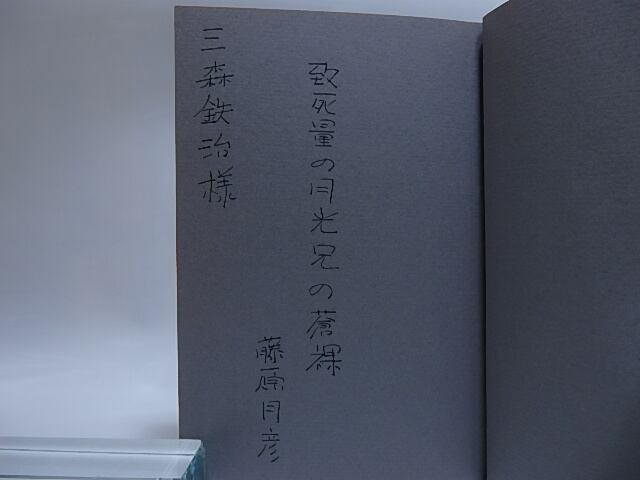 致死量の月光兄の蒼裸
藤原月彦
三森鉄治様